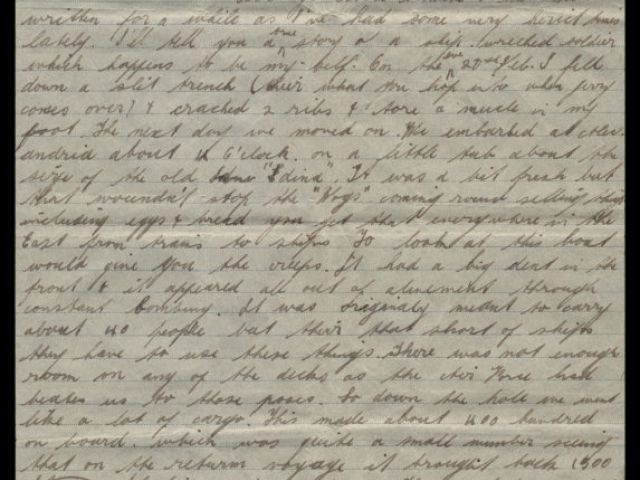 written for a while as I've had some very hectic times
lately. I'll tell you a true story of a ship wrecked soldier
which happens to be my self. On the eve 20th Feb. I fell
down a slit trench (their what you hop into when jerry
comes over) & cracked 2 ribs & tore a muscle in my
foot. The next day we moved on. We embarked at Alex-
andria about 4 O'clock. on a little tub about the
size of the old "Edina". It was a bit fresh but
that wouldn't stop the "Wogs" coming round selling things
including eggs & bread you get that everywhere in the
East from trains to ships To look at this boat
would give you the creeps. It had a big dent in the
front & it appeared all out of alinement through
constant bombing. It was originaly meant to carry
about 40 people but their that short of ships
they have to use these things. There was not enough
room on any of the decks as the Air Force had
beaten us to those poses. So down the hole we went
like a lot of cargo. This made about 400 hundred
on board. which was quite a small number seeing
that on the return voyage it brought back 1500